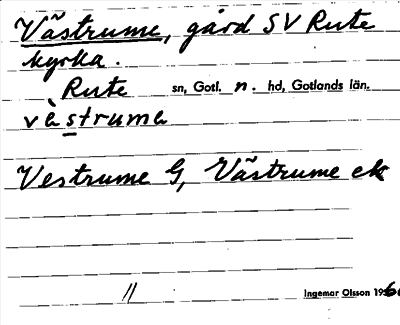 Västrume, gård SV Rute
kyrka.
Rute sn, Gotl. n. hd, Gotlands län.
västrume
Vestrume G, Västrume ek
Ingemar Olsson 196